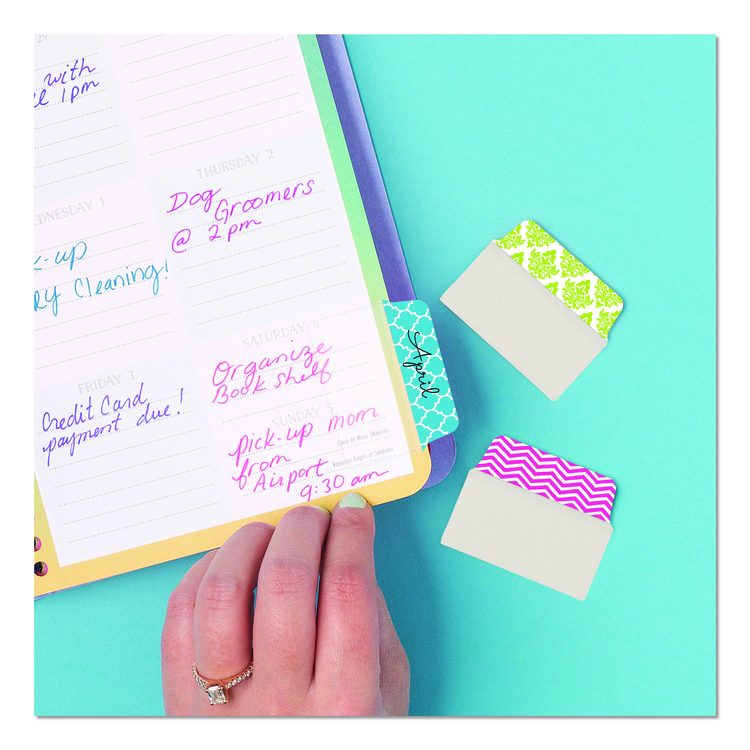 29
with
1pm
THURSDAY 2
Dog
Groomers
@ 2pm
WEDNESDAY 1
-up
Cleaning!
SATURDAY 4
Organize
Book Shelf
FRIDAY 3
Credit Card
payment due!
SUNDAY 5
pick-up mom
from
Airport
9:30 am
Cinco de Mayo (Mexico)
Ramadan Begins at Sundown
April